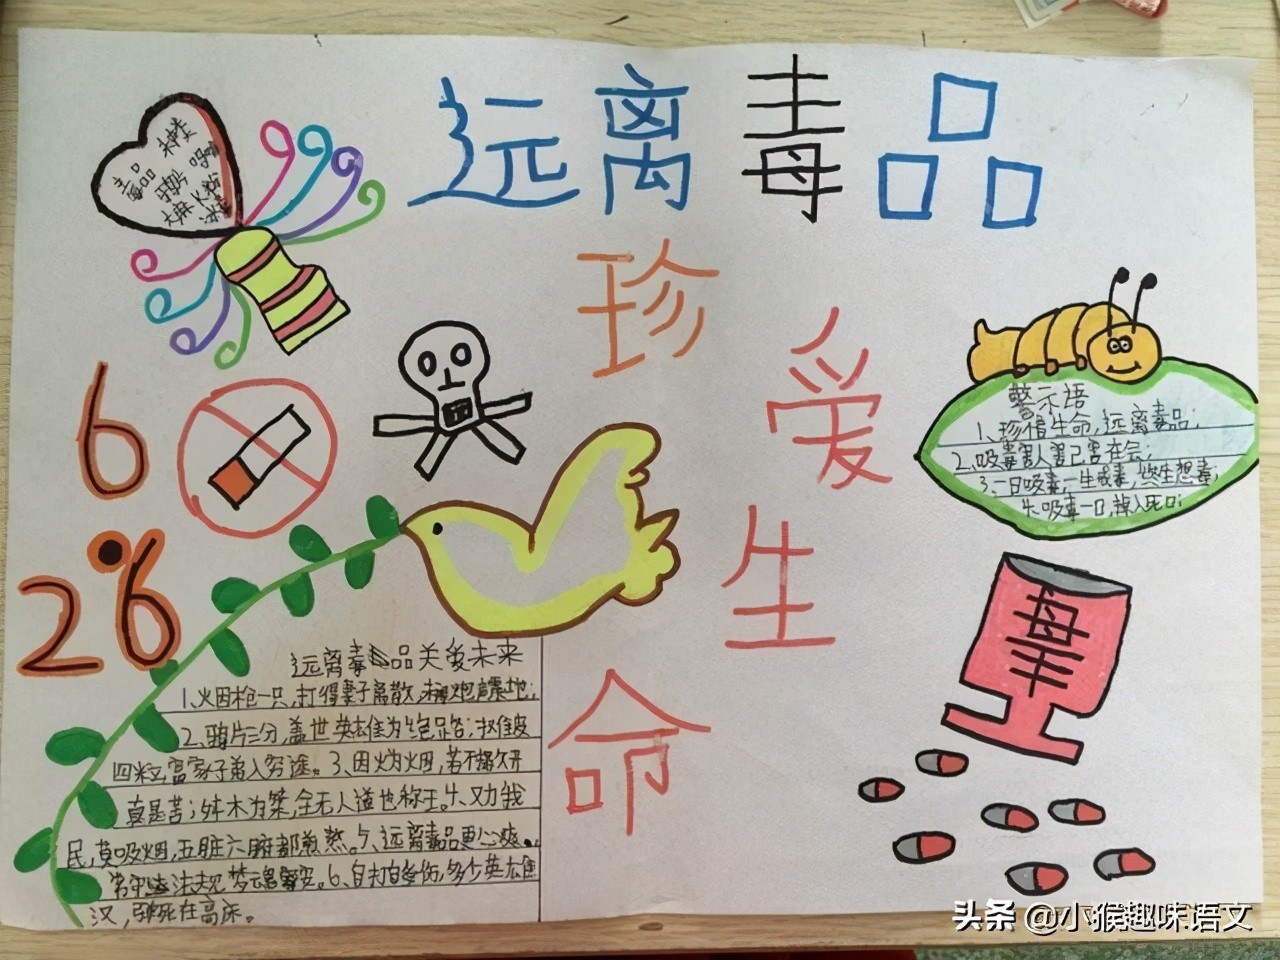 远离毒品
珍爱
生命
毒品
大麻
6
26
警示语
1、珍惜生命，远离毒品；
2、吸毒害人害己害社会；
3、一日吸毒，一生戒毒，终生想毒；
4、吸毒一口，掉入死口；
毒
远离毒品 关爱未来
1、火因枪一只，打得妻子离散，未闻炮声震地；
2、鸦片三分，盖世英雄为绝路；
四粒，富家子弟入穷途。3、因火为烟，若不撇欠开
真是苦；舛木为桀，全无人道也称王。4、又力我
民，莫吸烟，五脏六腑都煎熬。5、远离毒品更心爽，
常守法规梦魂安。6、自打自受伤，多少英雄
汉，弹死在高床。
头条 @小猴趣味语文